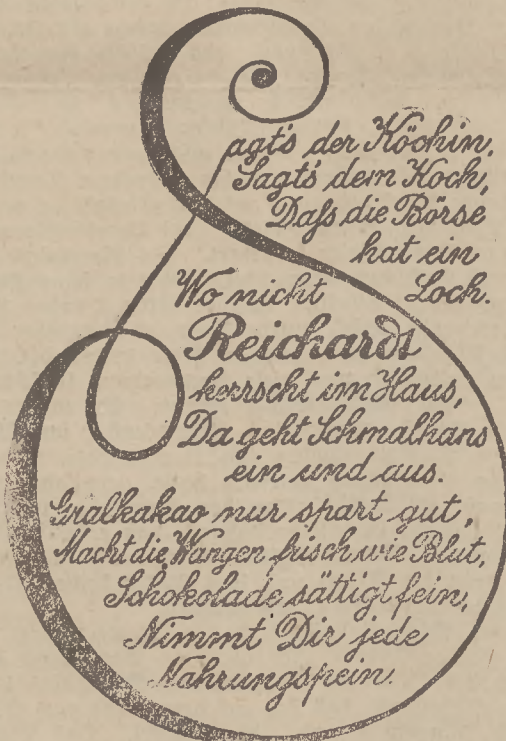 Sagt's der Köchin,
Sagt's dem Koch,
Daſs die Börse
hat ein
Wo nicht Loch.
Reichardt
herrscht im Haus,
Da geht Schmalhans
ein und aus.
Gralkakao nur spart gut,
Macht die Wangen frisch wie Blut,
Schokolade sättigt fein,
Nimmt Dir jede
Nahrungspein.